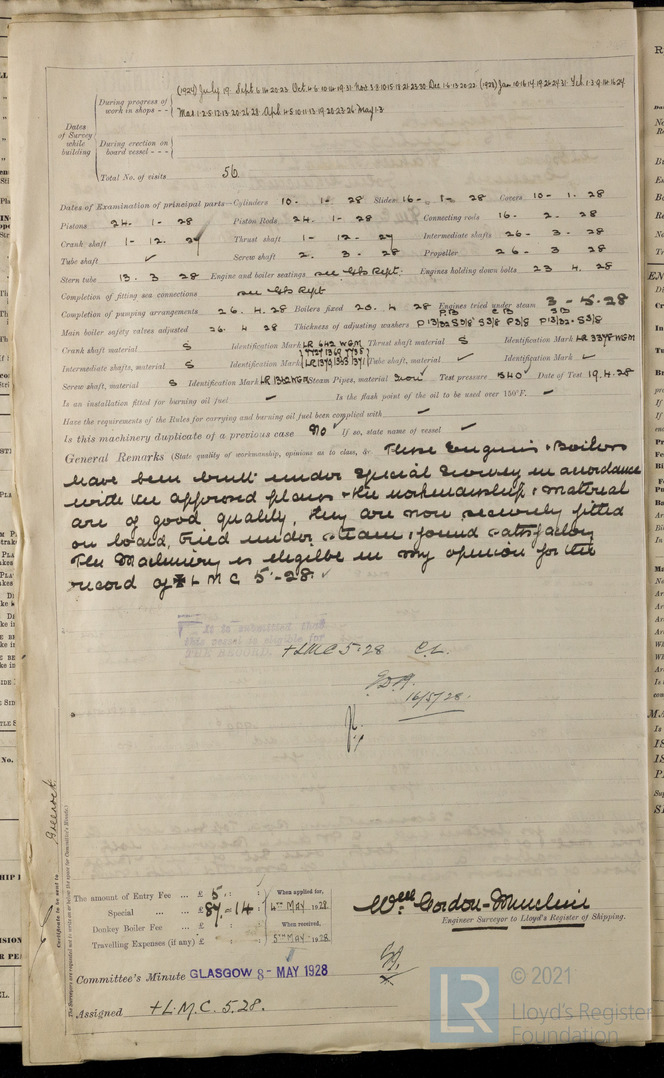 During progress of work in shops - - (1927) July 19. Sept 6.14.20.23. Oct. 4.6.10.14.19.31. Nov. 3.8.10.15.18.21.23.30. Dec. 1.6.13.20.22. (1928) Jan. 10.16.19.24.31. Feb. 1.3.9.14.16.24
Mar. 1.2.5.12.13.20.26.28. Apl. 4.5.10.11.13.19.20.23.26. May 1.3
Dates of Survey while building
During erection on board vessel - - -
Total No. of visits 56
Dates of Examination of principal parts—Cylinders 10 - 1 - 28 Slides 16 - 1 - 28 Covers 10 - 1 - 28
Pistons 24 - 1 - 28 Piston Rods 24 - 1 - 28 Connecting rods 16 - 2 - 28
Crank shaft 1 - 12 - 27 Thrust shaft 1 - 12 - 27 Intermediate shafts 26 - 3 - 28
Tube shaft ✓ Screw shaft 2 - 3 - 28 Propeller 26 - 3 28
Stern tube 13 . 3 28 Engine and boiler seatings see Gls Rept. Engines holding down bolts 23 4. 28
Completion of fitting sea connections see Gls Rept
Completion of pumping arrangements 26. 4. 28 Boilers fixed 20. 4 28 Engines tried under steam 3 - 5 - 28
Main boiler safety valves adjusted 26. 4 28 Thickness of adjusting washers P.B P 13/32 S 3/8 C B S 3/8 P 3/8 S B P 13/32 - S 3/8
Crank shaft material S Identification Mark LR 642 WGM Thrust shaft material S Identification Mark LR 3378 WGM
Intermediate shafts, material S Identification Marks Tube shaft, material ✓ Identification Mark ✓
Screw shaft, material S Identification Mark LR 1342 WGM Steam Pipes, material Iron ✓ Test pressure 540 Date of Test 19.4.28
Is an installation fitted for burning oil fuel ✓ Is the flash point of the oil to be used over 150°F. ✓
Have the requirements of the Rules for carrying and burning oil fuel been complied with ✓
Is this machinery duplicate of a previous case No ✓ If so, state name of vessel ✓
General Remarks (State quality of workmanship, opinions as to class, &c. These Engines & Boilers
have been built under Special Survey in accordance
with the approved plans & the workmanship & material
are of good quality, they are now securely fitted
on board, tried under steam & found satisfactory
The Machinery is eligible in my opinion for the
record of + L M C 5 - 28. ✓
It is submitted that
this vessel is eligible for
THE RECORD.
+ L.M.C 5.28 C.L.
16/5/28.
Greenock
Certificate to be sent to
The Surveyors are requested not to write on or below the space for Committee's Minute.
The amount of Entry Fee ... £ 5 : : When applied for,
Special ... ... £ 87 - 14 : 4TH MAY 1928
Donkey Boiler Fee ... £ : : When received,
Travelling Expenses (if any) £ : : 5TH MAY 1928
Engineer Surveyor to Lloyd's Register of Shipping.
Committee's Minute GLASGOW 8 - MAY 1928
Assigned + L.M.C. 5.28.
LR
© 2021
Lloyd's Register
Foundation